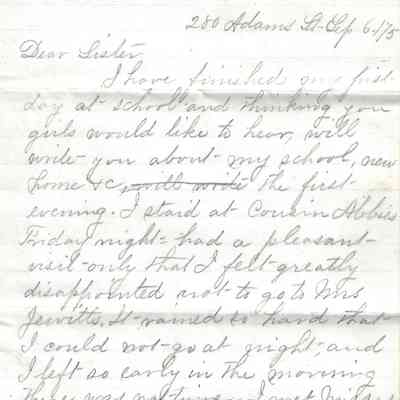 280 Adams St. Sep 6 /75
Dear Sister
I have finished my first
day at school and thinking you
girls would like to hear, will
write you about my school, new
home &c, will write the first
evening. I staid at Cousin Abbies
Friday night = had a pleasant
visit only that I felt greatly
disappointed not to go to Mrs
Jewitts, It rained so hard that
I could not go at night, and
I left so early in the morning
there was no time. I met